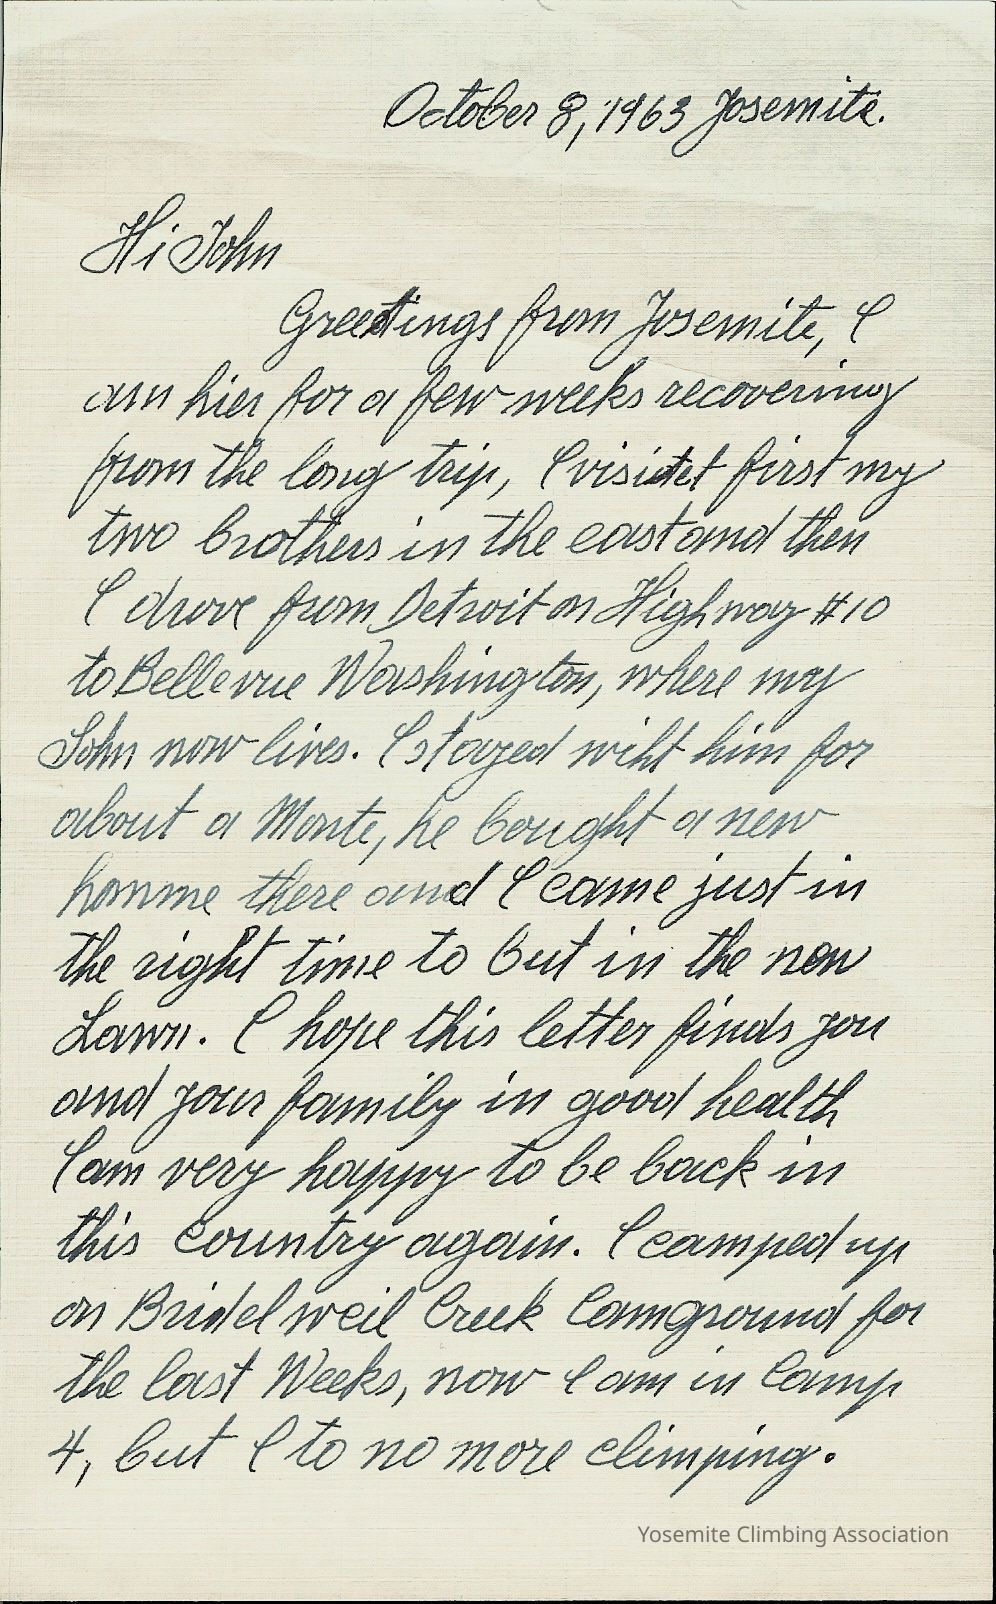 October 8, 1963 Josemite.
Hi John
Greetings from Josemite, I
am hier for a few weeks recovering
from the long trip, I visitet first my
two brothers in the east and then
I drove from Detroit on Highway #10
to Bellevue Washington, where my
John now lives. I stayed wiht him for
about a Monte, he bought a new
homme there and I came just in
the right time to but in the new
Lawn. I hope this letter finds you
and your family in good health
I am very happy to be back in
this country again. I camped up
on Bridelweil Creek Camground for
the last Weeks, now I am in Camp
4, but I to no more climping.
Yosemite Climbing Association